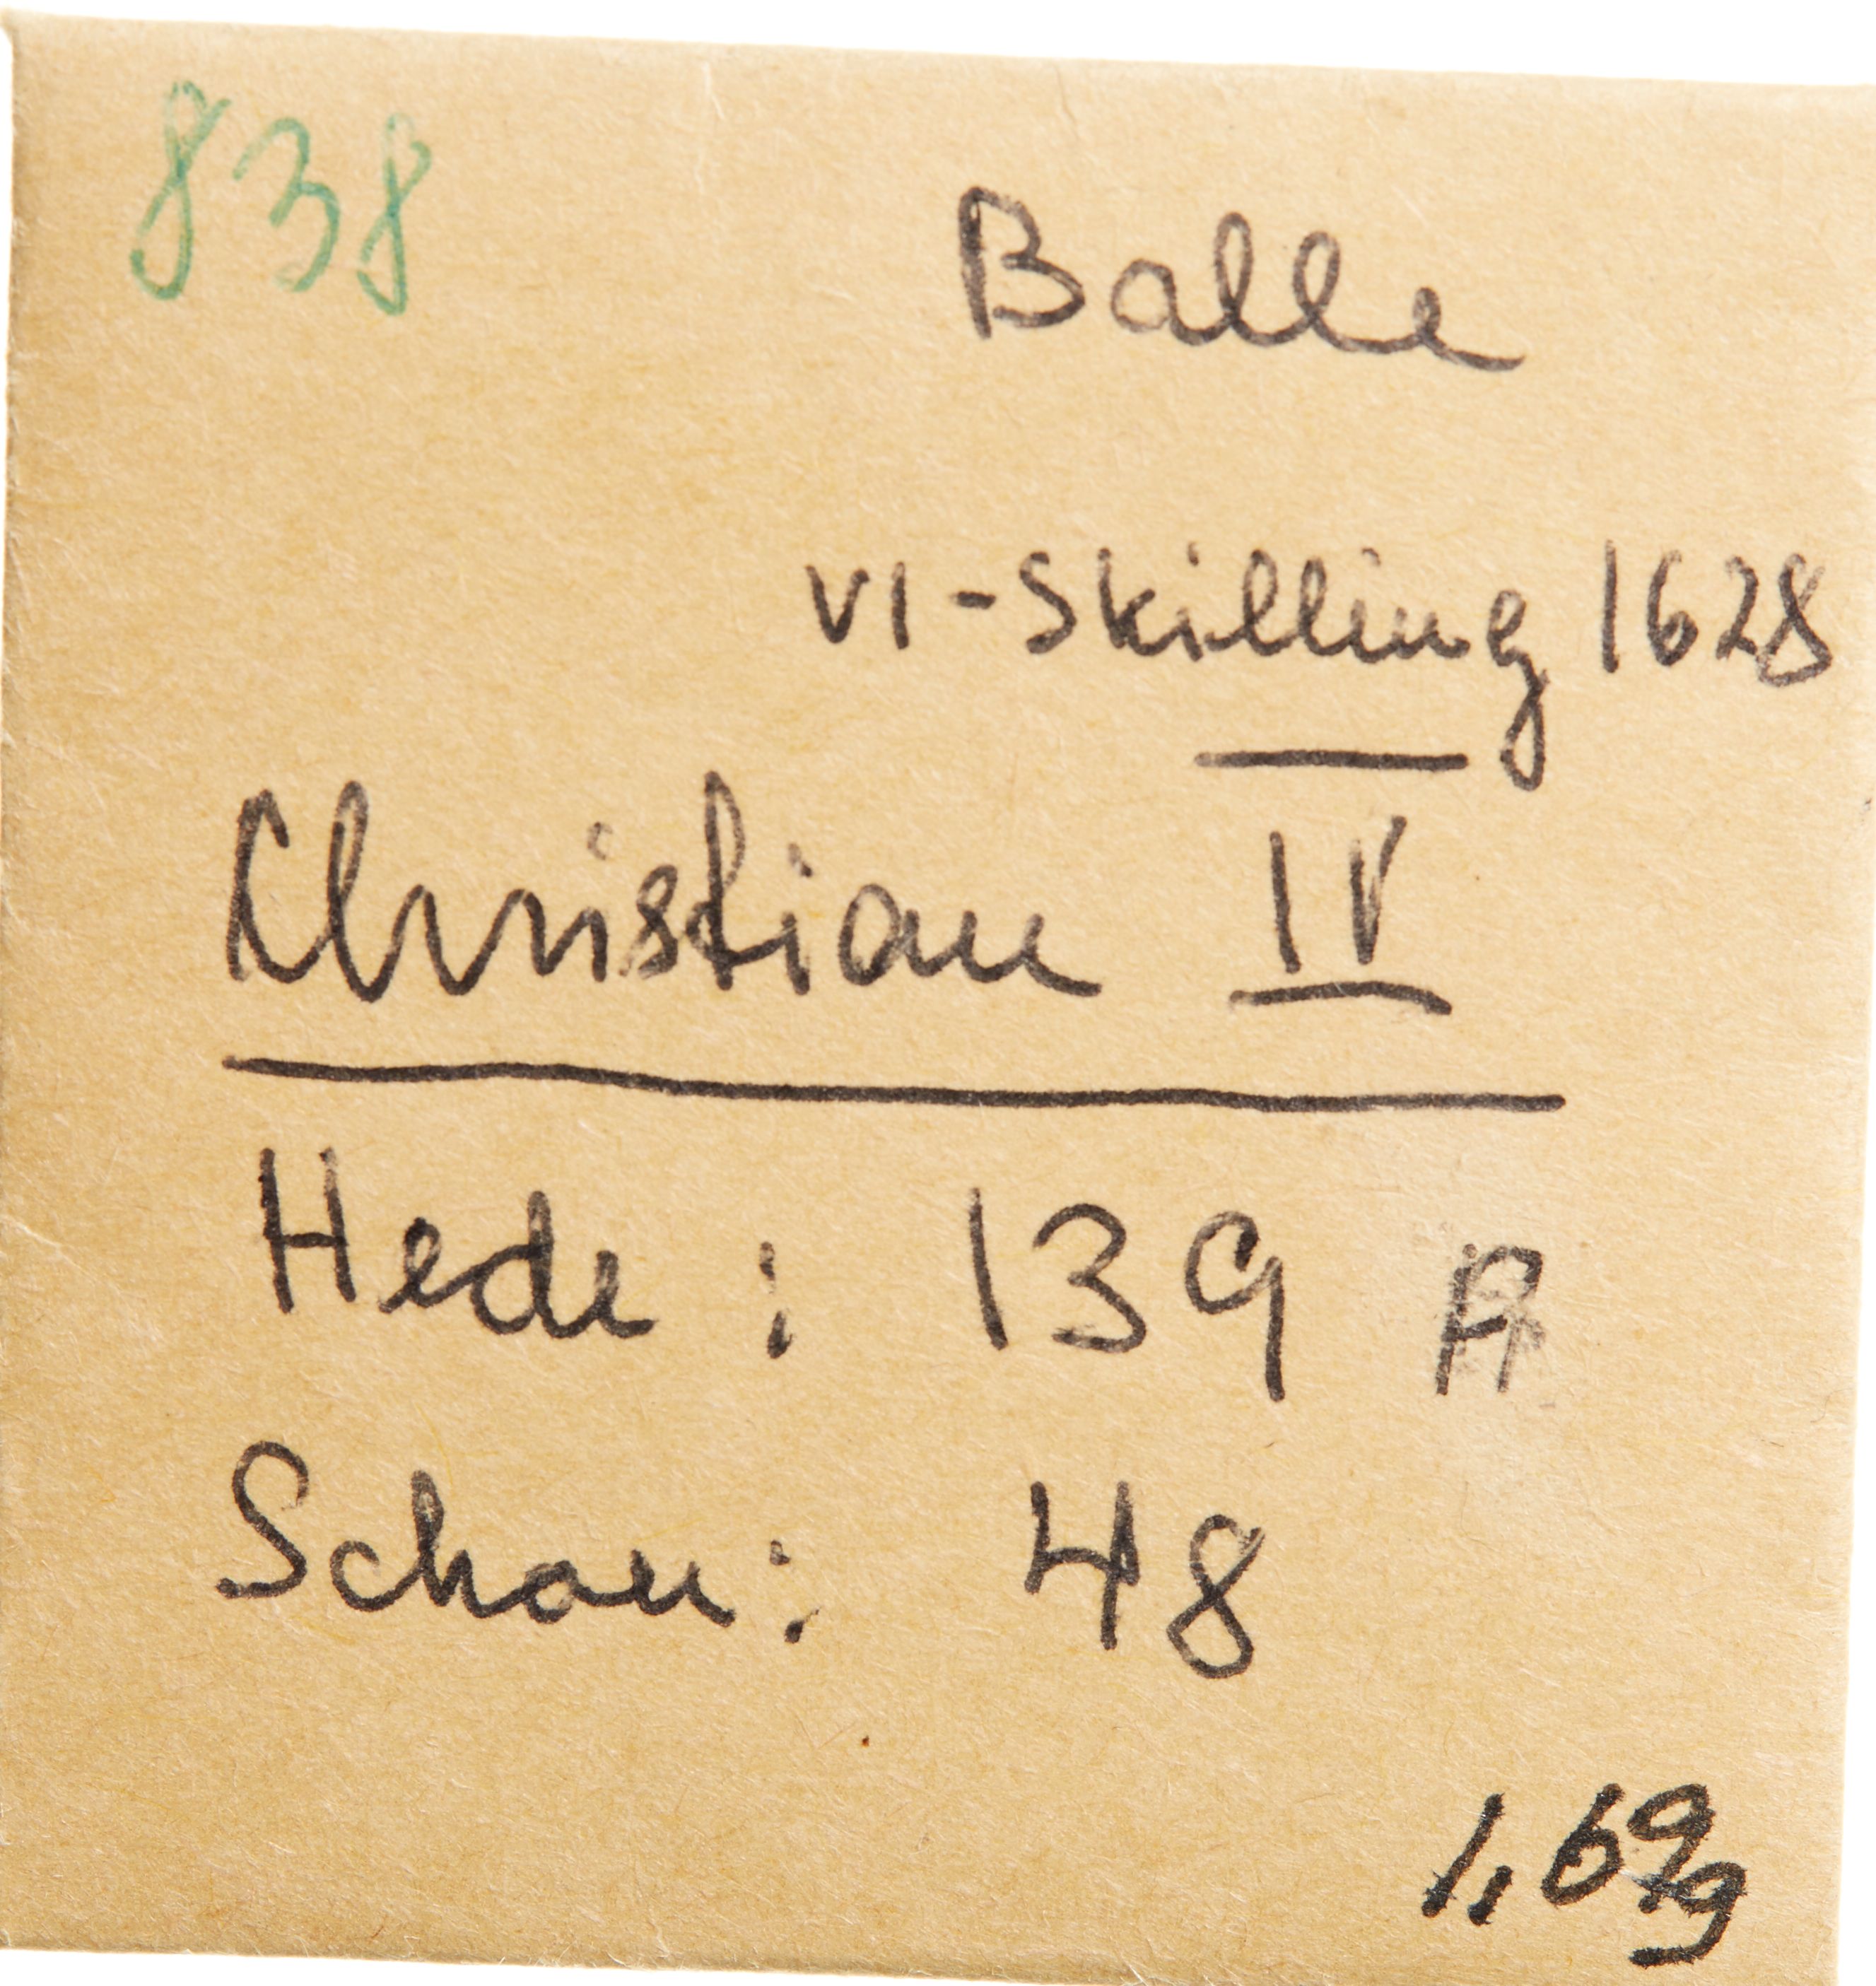 838
Balle
VI-Skilling 1628
Christian IV
Hede: 139 A
Schou: 48
1,69g